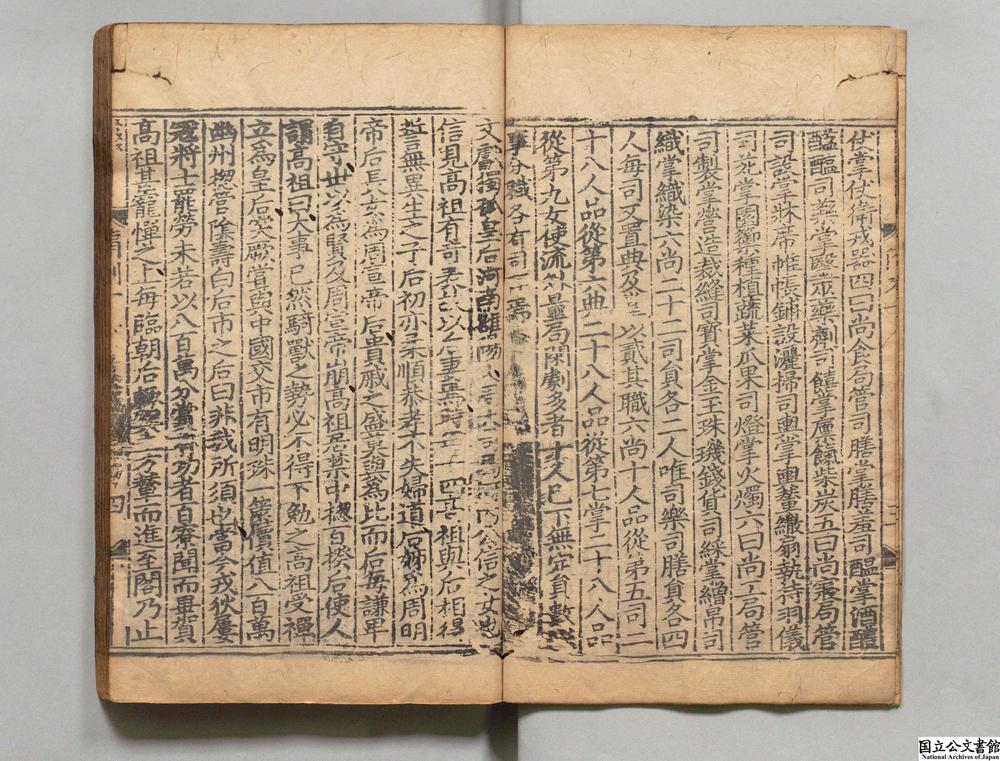 仗掌仗衛戎器四曰尚食局管司膳掌膳羞司醞掌酒醴
醯醢司藥掌醫巫藥劑司饎掌廩餼柴炭五曰尚寢局管
司設掌牀席帷帳鋪設灑掃司輿掌輿輦繖扇執持羽儀
司苑掌園籞種植蔬菜瓜果司燈掌火燭六曰尚工局管
司製掌營造裁縫司寶掌金玉珠璣錢貨司綵掌繒帛司
織掌織染六尚二十二司員各二人唯司樂司膳員各四
人每司又置典及掌以貳其職六尚十人品從第五司二
十八人品從第六典二十八人品從第七掌二十八人品
從第九女使流外量局閑劇多者十人已下無定員數
事分職各有司存焉
文獻獨孤皇后河南雒陽人周大司馬河內公信之女也
信見高祖有奇表故以后妻焉時年十四高祖與后相得
誓無異生之子后初亦柔順恭孝不失婦道后姊為周明
帝后長女為周宣帝后貴戚之盛莫與為比而后每謙卑
自守世以為賢及周宣帝崩高祖居禁中揔百揆后使人
謂高祖曰大事已然騎獸之勢必不得下勉之高祖受禪
立為皇后突厥嘗與中國交市有明珠一篋價值八百萬
幽州揔管陰壽白后市之后曰非我所須也當今戎狄屢
寇將士罷勞未若以八百萬分賞有功者百寮聞而畢賀
高祖甚寵憚之上每臨朝后輒與上方輦而進至閤乃止
四
国立公文書館
National Archives of Japan